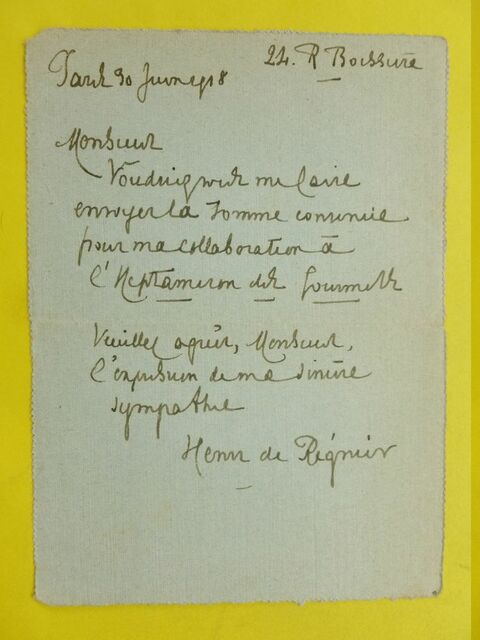 24. R Boissière
Paris 30 Juin 1918
Monsieur
Voudriez vous me faire
envoyer la somme convenue
pour ma collaboration à
l'Heptameron des Gourmets
Veuillez agréer, Monsieur,
l'expression de ma sincère
sympathie
Henri de Régnier